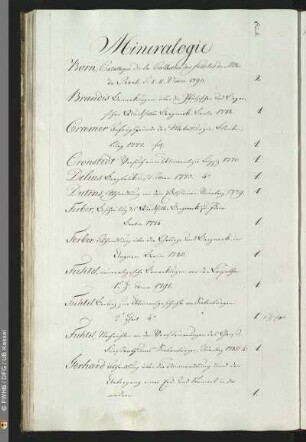 Mineralogie
Born, Catalogue de la Collection des fossiles de Mlle
de Raab T. I. II. Vienne 1790. 2
Brandis Bemerkungen über die
Berlin 1782. 1
Cramer Anfangsgründe der Metallurgie Blanken-
burg 1774. fol. 1
Cronstedt Versuch einer Mineralogie Leipz. 1770. 1
Delius Bergbaukunst Wien 1773. 4° 1
Dutens, Abhandlung von den Edelsteinen Nürnberg 1779. 1
Ferber, Beschreibung des
Berlin 1774 1
Ferber Abhandlung über die Gebirge und Bergwerke in
Ungarn Berlin 1780. 1
Fichtel, mineralogische Bemerkungen von den Karpathen
1. Wien 1791. 1
Fichtel Beitrag zur Mineralgeschichte von Siebenbürgen
2 Theil 4° 1
Fichtel, Nachrichten von den Versteinerungen des Groß-
fürstenthums Siebenbürgen Nürnberg 1780. 4. 1
Gerhard Abhandlung über die Umwandlung und den
Uebergang einer Erd und Steinart in die
andere 1
© FWHB / DFG / UB Kassel